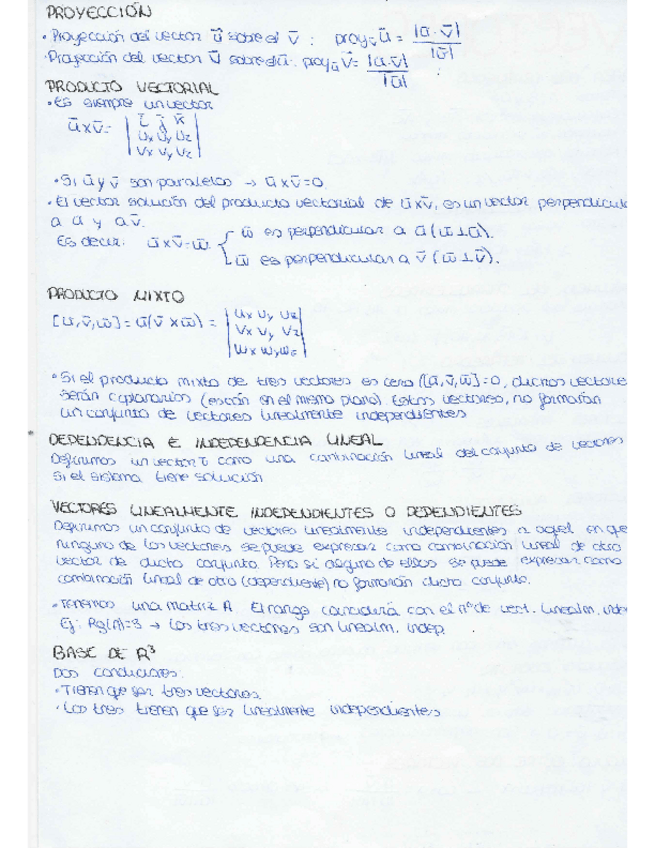 PROYECCIÓN
· Proyección del vector ū sobre el v̄ : proy_v̄ ū = |ū · v̄| / |v̄|
· Proyección del vector v̄ sobre el ū: proy_ū v̄ = |ū·v̄| / |ū|
PRODUCTO VECTORIAL
· Es siempre un vector
ū x v̄ = | i j k |
| Ux Uy Uz |
| Vx Vy Vz |
· Si ū y v̄ son paralelos → ū x v̄ = 0
· El vector solución del producto vectorial de ū x v̄, es un vector perpendicul
a ū y a v̄.
Es decir: ū x v̄ = w̄ { w̄ es perpendicular a ū (w̄ ⊥ ū).
w̄ es perpendicular a v̄ (w̄ ⊥ v̄).
PRODUCTO MIXTO
[ū, v̄, w̄] = ū(v̄ x w̄) = | Ux Uy Uz |
| Vx Vy Vz |
| Wx Wy Wz |
· Si el producto mixto de tres vectores es cero ([ū, v̄, w̄] = 0, dichos vectore
serán coplanarios (están en el mismo plano). Estos vectores, no formarán
un conjunto de vectores linealmente independientes
DEPENDENCIA E INDEPENDENCIA LINEAL
Definimos un vector v̄ como una combinación lineal del conjunto de vectores
Si el sistema tiene solución
VECTORES LINEALMENTE INDEPENDIENTES O DEPENDIENTES
Definimos un conjunto de vectores linealmente independientes a aquel en que
ninguno de los vectores se puede expresar como combinación lineal de otro
vector de dicho conjunto. Pero si alguno de ellos se puede expresar como
combinación lineal de otro (dependiente) no formarán dicho conjunto.
· Tenemos una matriz A El rango coincidirá con el nº de vect. linealm. inde
Ej: Rg(A)=3 → Los tres vectores son linealm. indep.
BASE DE R³
Dos condiciones:
· Tienen que ser tres vectores
· Los tres tienen que ser linealmente independientes